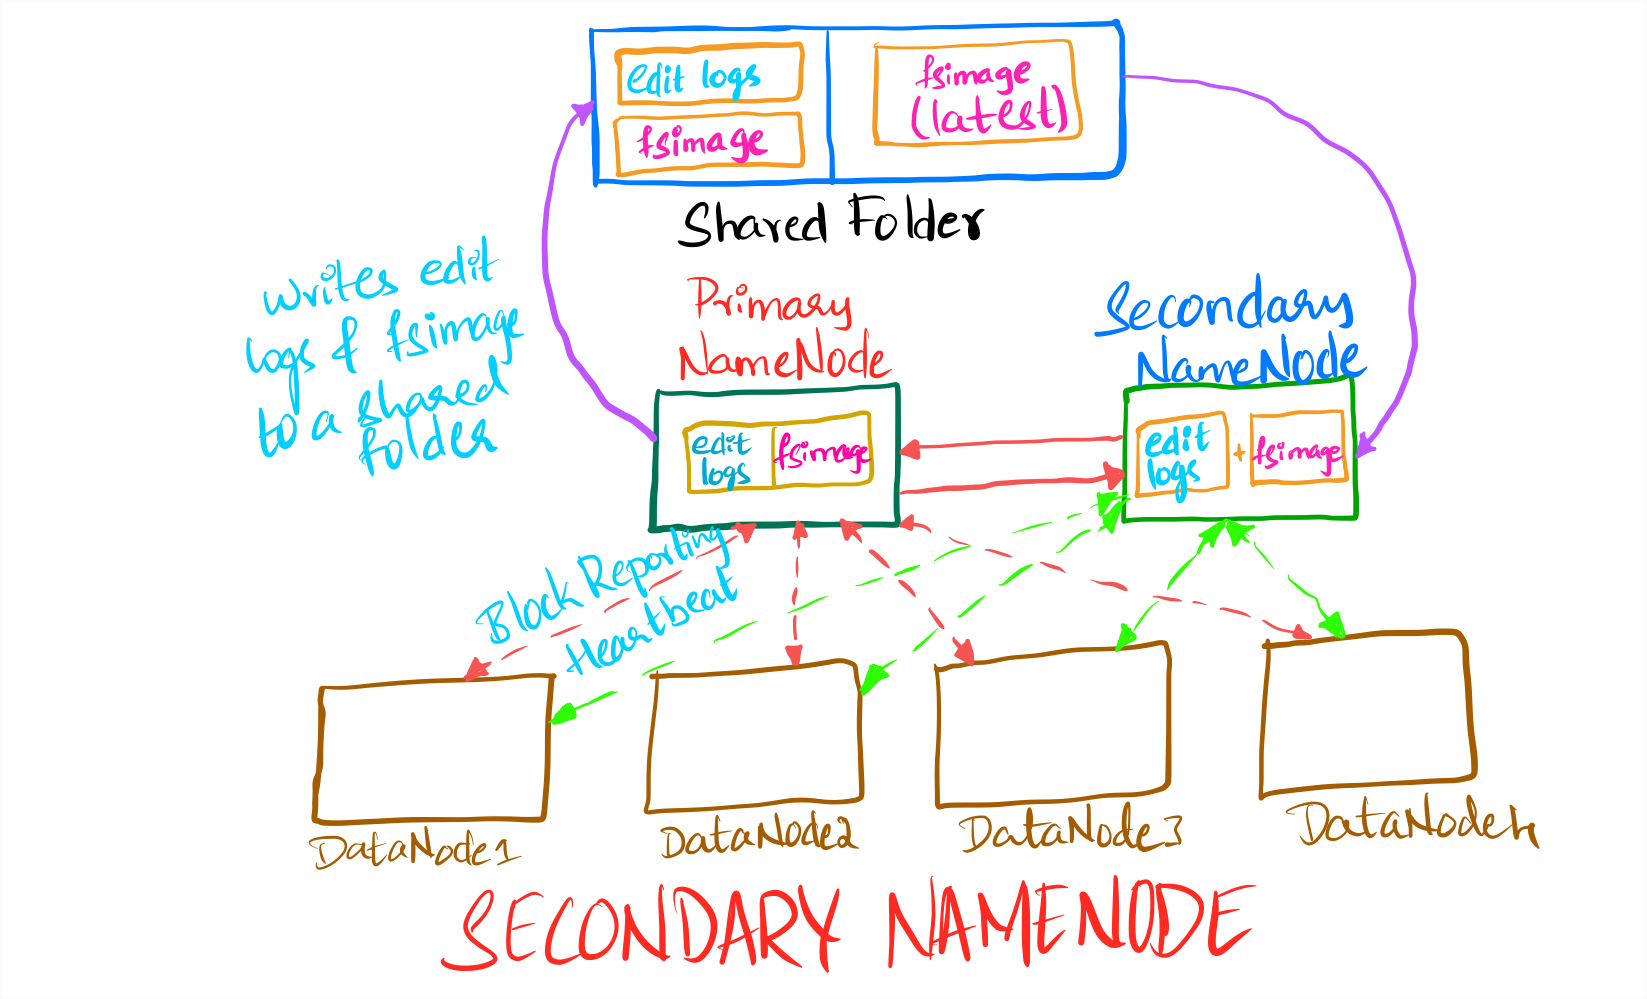 edit logs
fsimage
fsimage
(latest)
Shared Folder
Writes edit
logs & fsimage
to a shared
folder
Primary
NameNode
Secondary
NameNode
edit
logs
fsimage
edit
logs
+
fsimage
Block Reporting
Heartbeat
DataNode1
DataNode2
DataNode3
DataNode4
SECONDARY NAMENODE